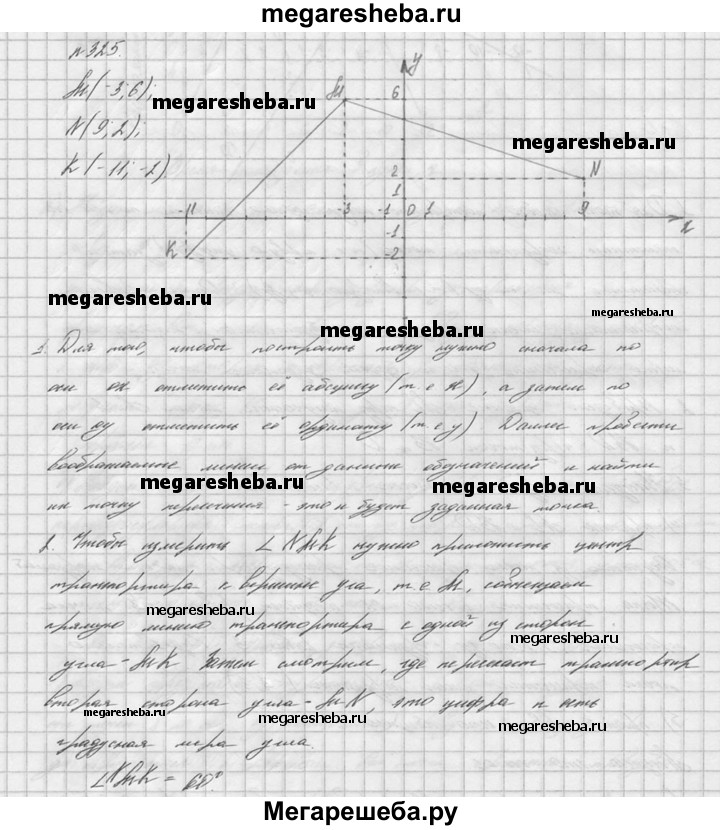 megaresheba.ru
№ 325.
М(-3; 6);
N(9; 2);
K(-11; -2)
megaresheba.ru
megaresheba.ru
М y 6
N 2
-11 -3 -1 0 1 9 x
1
-1
K -2
megaresheba.ru
megaresheba.ru
megaresheba.ru
1. Для того, чтобы построить точку нужно сначала по
оси ox отметить её абсциссу (т.е x), а затем по
оси oy отметить её ординату (т.е y) Далее провести
воображаемые линии от данных обозначений и найти
megaresheba.ru
megaresheba.ru
их точку пересечения - это и будет заданная точка.
2. Чтобы измерить ∠NМK нужно приложить центр
транспортира к вершине угла, т.е М, совмещаем
megaresheba.ru
прямую линию транспортира с одной из сторон
megaresheba.ru
угла - МK Затем смотрим, где пересекает транспортир
вторая сторона угла - МN, это цифра и есть
megaresheba.ru
megaresheba.ru
megaresheba.ru
градусная мера угла.
∠NМK =
Мегарешеба.ру